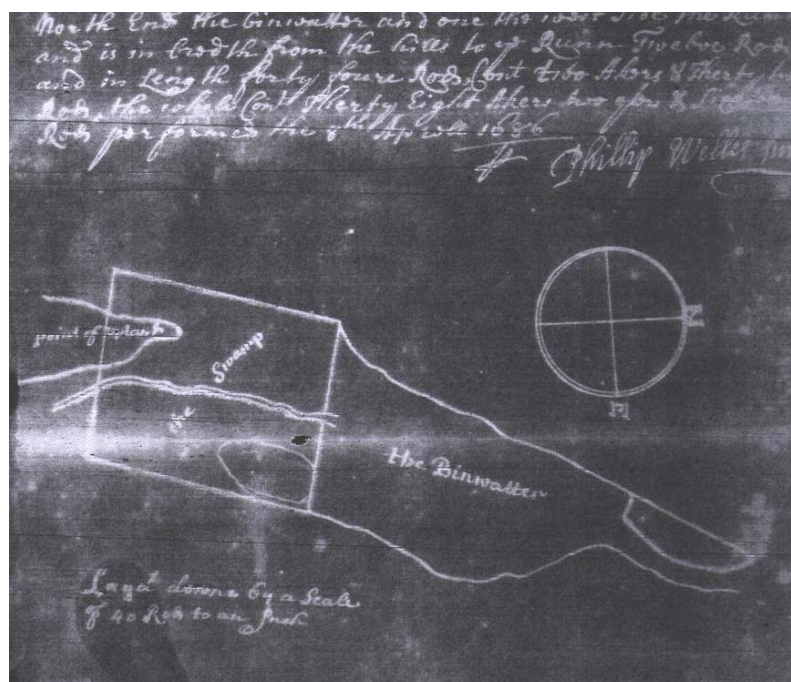 North End the binwatter and one the west side the Runn
and is in bredth from the hills to ye Runn Twelve Rods
and in Length forty foure Rods, Cont two Akers & Therty
Rods, the whole Cont Therty Eight Akers two &
Rods performed the 8th Aprill 1686
Phillip Welles
point of upland
Swamp
the
N
E
the Binwatter
Layd downe by a Scale
of 40 Rods to an Inch